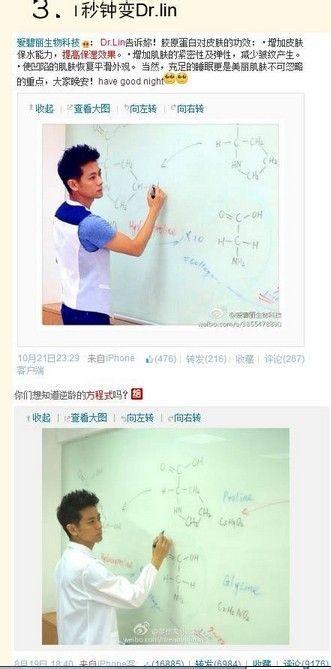 3. 1秒钟变Dr.lin
爱碧丽生物科技: Dr.Lin告诉妳！胶原蛋白对皮肤的功效：·增加皮肤
保水能力，提高保湿效果。·增加肌肤的紧密性及弹性，减少皱纹产生。
·使凹陷的肌肤恢复平滑外观。当然，充足的睡眠更是美丽肌肤不可忽略
的重点，大家晚安！have good night
收起 | 查看大图 向左转 向右转
H-C-CH2
HN CH2
O C OH
H-C-H
NH2
X10
@爱碧丽生物科技
10月21日23:29 来自iPhone (476) | 转发(216) | 收藏 | 评论(267)
客户端
你们想知道逆龄的方程式吗？
收起 | 查看大图 | 向左转 向右转
O C OH
H-C-CH2
HN CH2
Proline
C5H9O2
O C OH
H-C-H
NH2
Glycine
C2H5NO2
8月19日 18:40 来自iPhone客 (16885) | 转发(6984) | 收藏 |